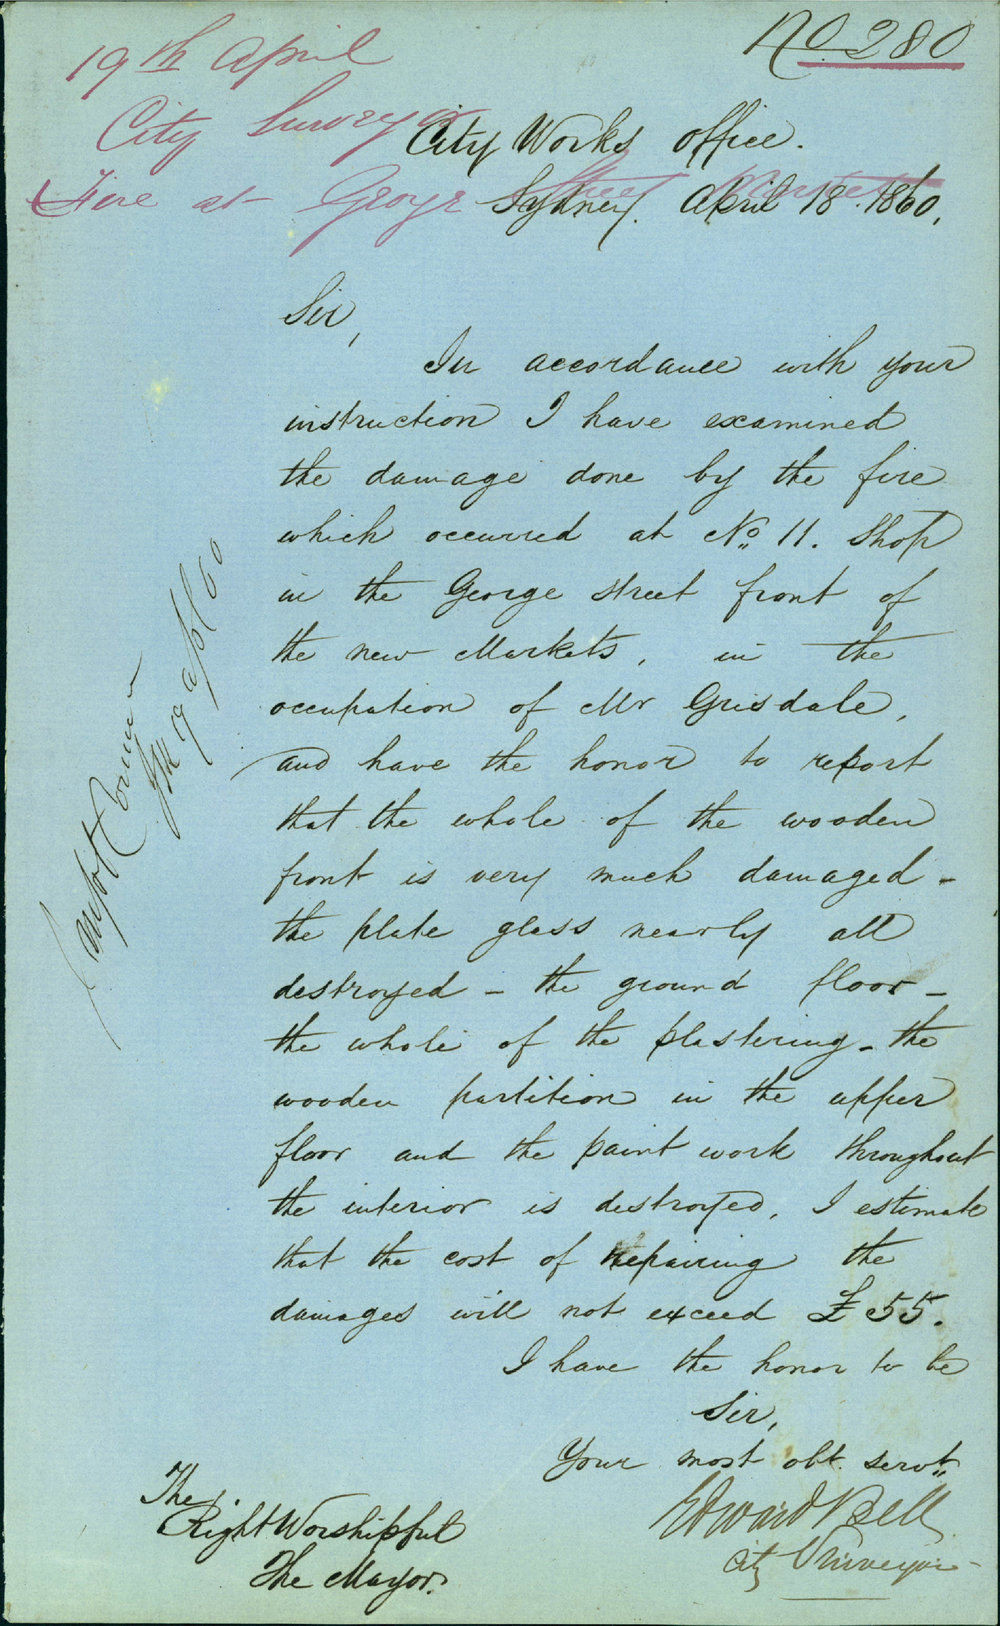 No 280
19th April
City Surveyor
Fire at George Street Market
City Works Office.
Sydney. April 18. 1860.
Sir,
In accordance with your
instruction I have examined
the damage done by the fire
which occurred at No. 11. Shop
in the George street front of
the new Markets, in the
occupation of Mr Grisdale,
and have the honor to report
that the whole of the wooden
front is very much damaged -
the plate glass nearly all
destroyed - the ground floor -
the whole of the plastering - the
wooden partition in the upper
floor and the paint work throughout
the interior is destroyed. I estimate
that the cost of repairing the
damages will not exceed £55.
I have the honor to be
Sir,
Your most obt. servt.
Edward Bell
City Surveyor
The
Right Worshipful
The Mayor.
19 Apl 60